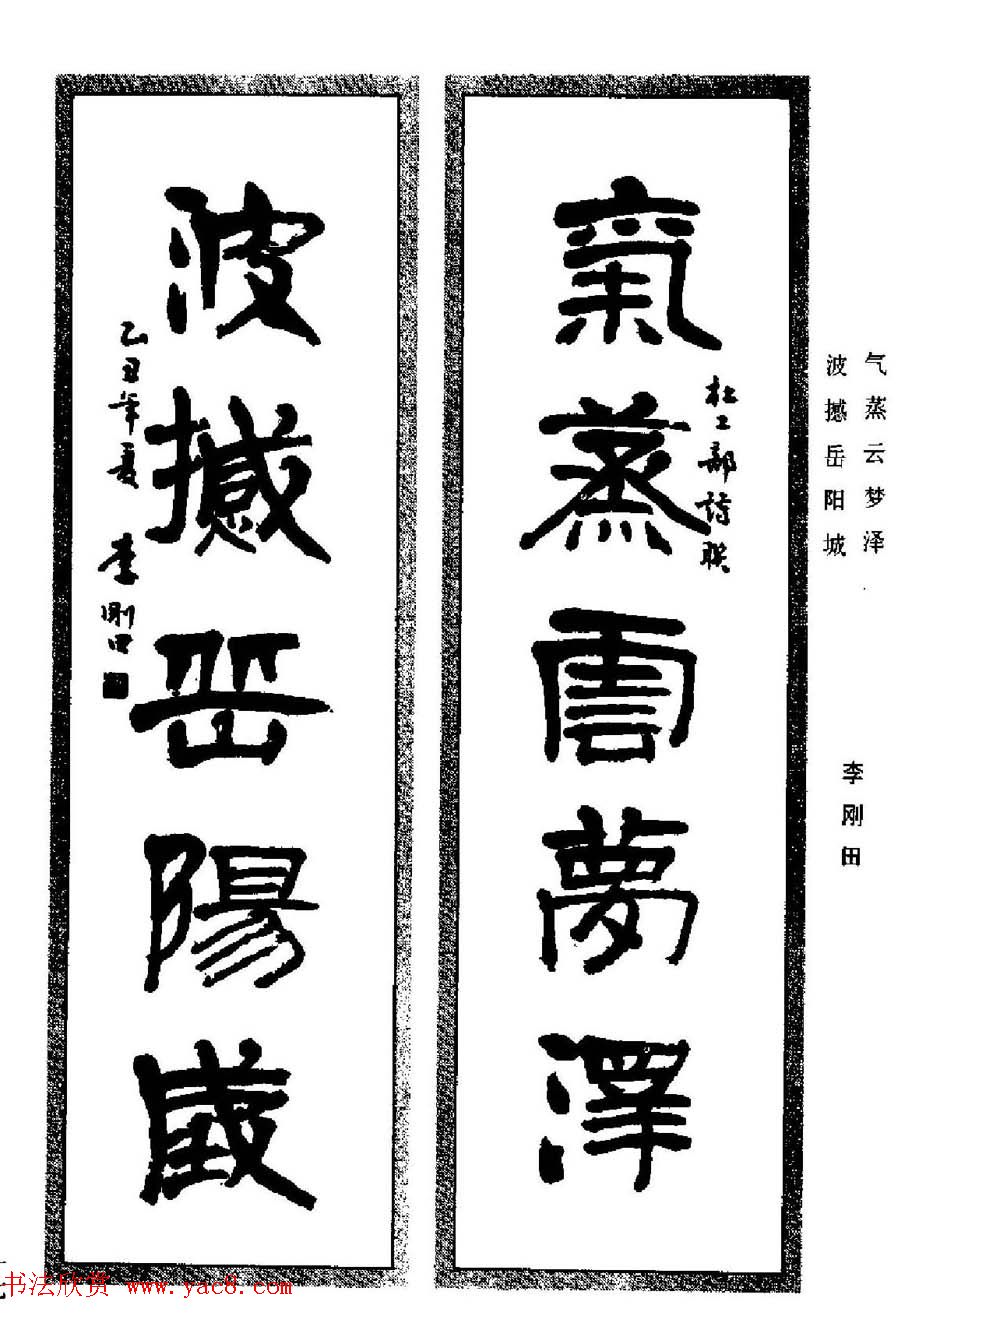 气蒸云梦泽
波撼岳阳城
李刚田
氣蒸雲夢澤
杜工部詩联
波撼岳陽城
乙丑年夏 李刚田
书法欣赏 www.yac8.com